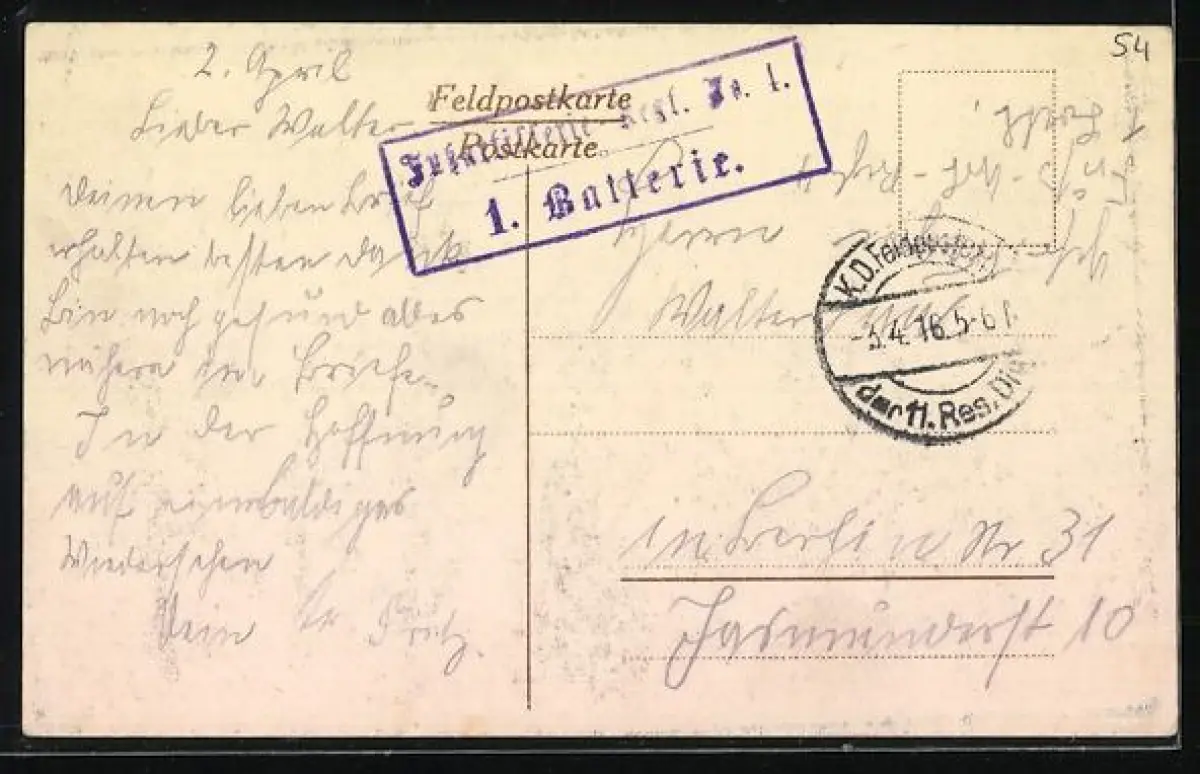 54
2. April
Feldpostkarte
Postkarte
Fußartillerie Regt. No. 1.
1. Batterie.
Lieber Walter
Deinen lieben Brief
erhalten besten Dank.
Bin noch gesund alles
nähere im Briefe.
In der Hoffnung
auf ein baldiges
Wiedersehen
Dein Fritz.
Herrn
Walter
K.D. Feldpostexp.
-3.4.16.5-6
der 11. Res. Div.
in Berlin Nr 31
Jasmunderst 10